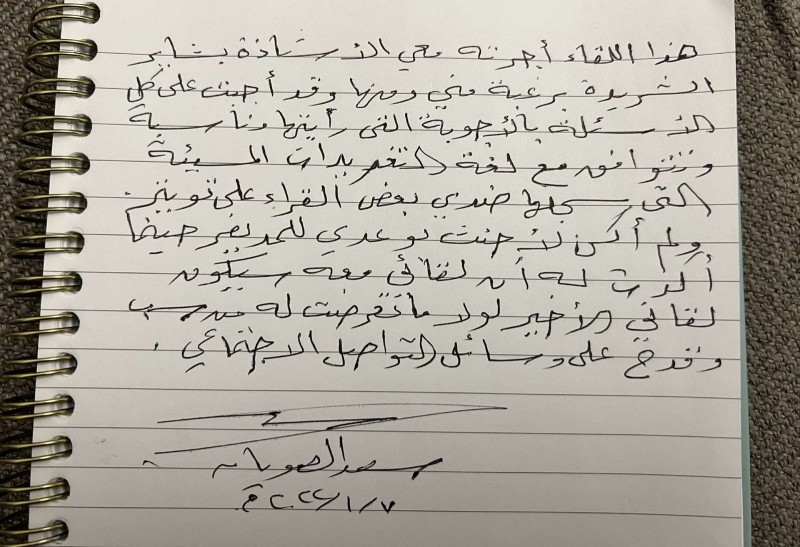 هذا اللقاء أجرته معي الأستاذة بشاير
الشريدة برغبة مني ومنها وقد أجبت على كل
الأسئلة بالأجوبة التي رأيتها مناسبة
وتتوافق مع لغة التغريدات المسيئة
التي سجلها ضدي بعض القراء على تويتر.
ولم أكن لأحنث بوعدي للمديفر حينما
أكدت له أن لقائي معه سيكون
لقائي الأخير لولا ما تعرضت له من سب
وقدح على وسائل التواصل الاجتماعي.
سعد الصويان
٢٠٢٢/١/٧م